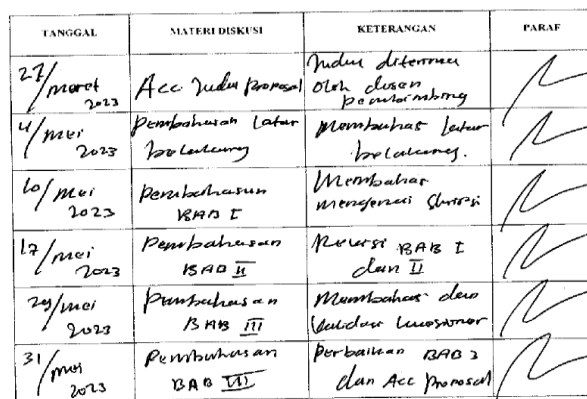 TANGGAL MATERI DISKUSI KETERANGAN PARAF
27/maret 2023 Acc Judul Proposal Judul diterima oleh dosen pembimbing
4/mei 2023 Pembahasan Latar belakang Membahas Latar belakang.
10/mei 2023 Pembahasan BAB I Membahas mengenai
17/mei 2023 Pembahasan BAB II Revisi BAB I dan II
29/mei 2023 Pembahasan BAB III Membahas dan Validasi kuesioner
31/mei 2023 Pembahasan BAB III Perbaikan BAB 3 dan Acc Proposal